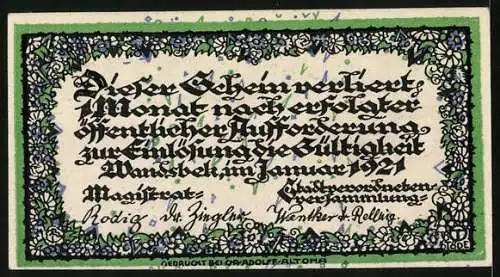 Dieser Schein verliert
1 Monat nach erfolgter
öffentlicher Aufforderung
zur Einlösung die Gültigkeit
Wandsbek, im Januar 1921
Magistrat- Stadtverordneten-
versammlung-
Rodig Dr. Ziegler
GEDRUCKT BEI DR. ADOLFF-ALTONA